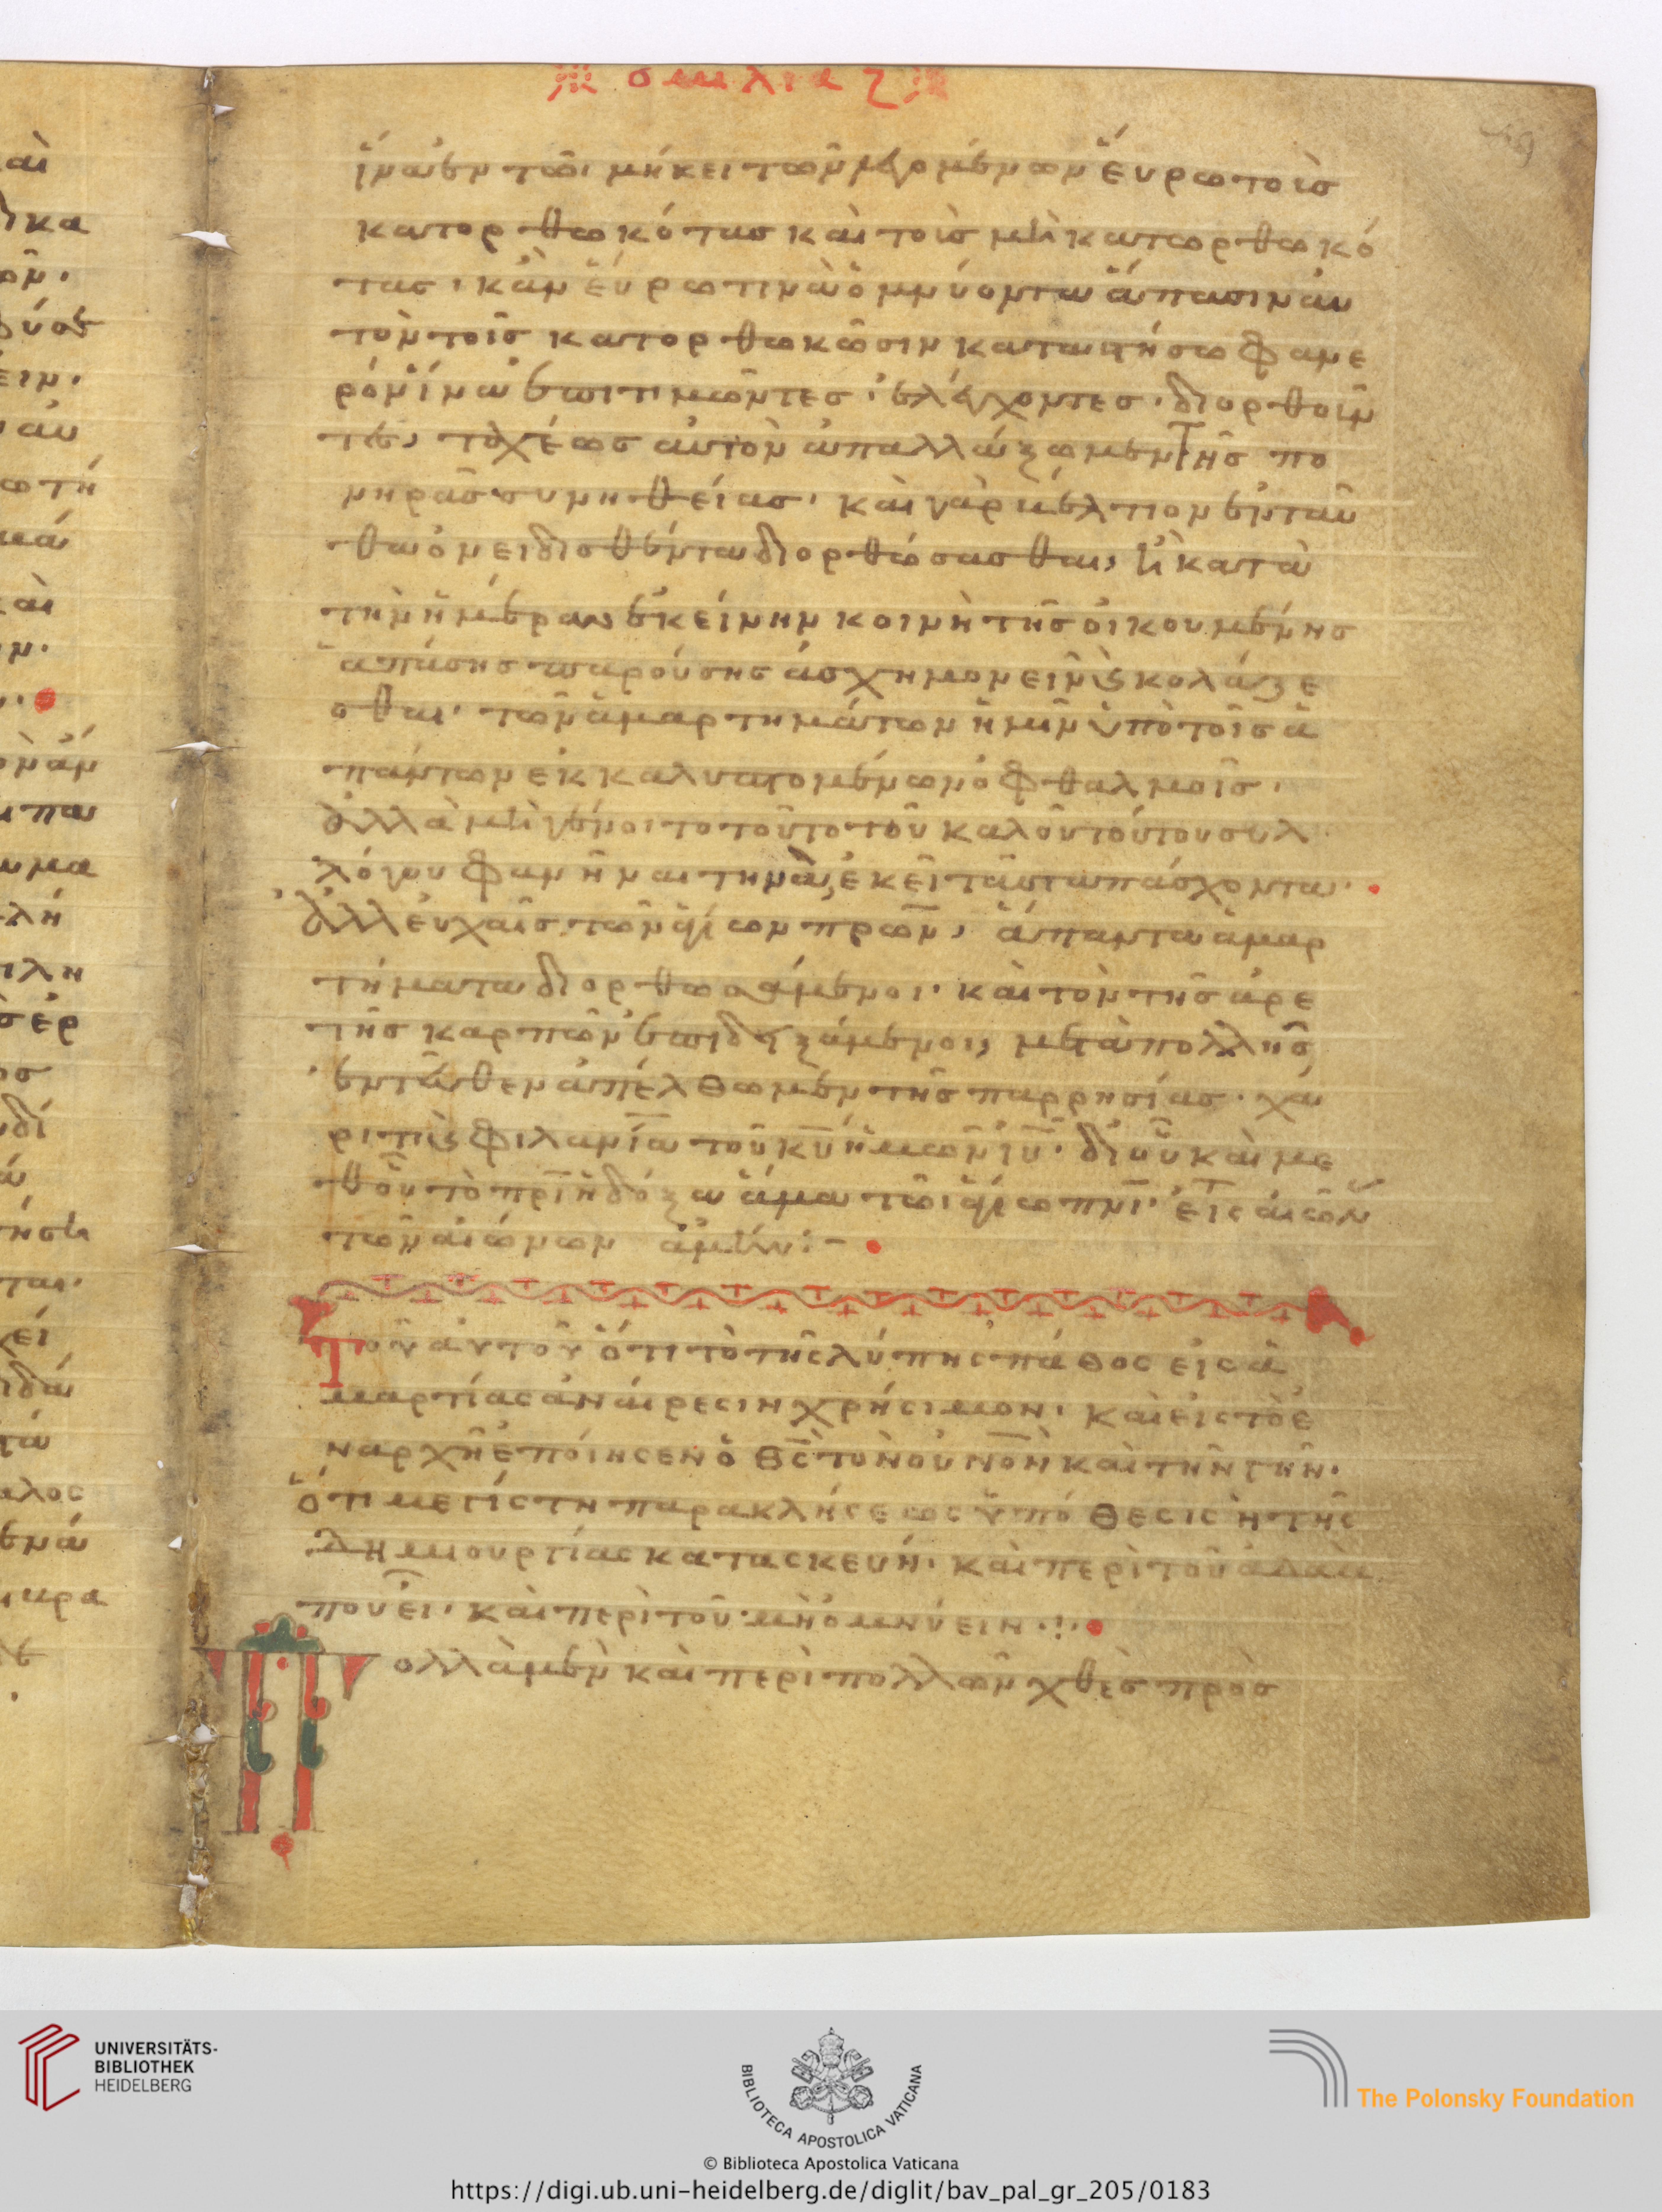 ὁμιλία ζ
ἵνα ἐν τῶι μήκει των εὕρω τοὺσ
κατορθωκότασ καὶ τοὺσ μὴ κατωρθωκό
τας· κἂν εὕρω τινὰ ὀμνύοντα ἅπασιν αυ
τὸν τοῖσ κατορθωκῶσιν καταστήσω φανε
ρόν ἵνα ἐπιτιμῶντεσ· ἐλέγχοντεσ· διορθοῦν
τες, ταχέωσ αὐτὸν ἀπαλλάξωμεν τῆσ πο
νηρᾶσ συνηθείασ· καὶ γὰρ βέλτιον ἐνταῦ
θα ὀνειδισθέντα διορθώσασθαι, ἢ κατὰ
τὴν ἡμέραν ἐκείνην κοινὴ τῆσ οἰκουμένησ
ἁπάσησ παρούσησ ἀσχημονεῖν ϗ κολάζε
σθαι· τῶν ἁμαρτημάτων ἡμῶν ὑπὸ τοῖσ ἁ
πάντων ἐκκαλυπτομένων ὀφθαλμοῖσ·
ἀλλὰ μὴ γένοιτο τοῦ καλοῦ τούτου συλ
λόγου φανῆναι τινὰ, ἐκεῖ ταῦτα πάσχοντα·
ἀλλ εὐχαῖσ τῶν ἁγίων πρων, ἅπαντα ἁμαρ
τήματα διορθωσάμενοι· καὶ τὸν τῆσ ἀρε
τῆσ καρπὸν ἐπιδειξάμενοι, μετὰ πολλῆσ
ἐντεῦθεν ἀπέλθωμεν τῆσ παρρησίασ· χά
ριτι ϗ φιλανία τοῦ κυ ἡμῶν ιυ· δι οὗ καὶ με
θ οὗ τῶ πρι ἡ δόξα ἅμα τῶι ἁγίω πνι· εἰς αἰῶν
τῶν αἰώνων ἀμήν:-
Τοῦ αὐτοῦ ὅτι τὸ τῆς λύπης πάθος εἰς ἁ
μαρτίας ἀναίρεσιν χρήσιμον· καὶ εἰς τὸ ἐ
ν ἀρχῆ ἐποίησεν ὁ θς τὸν οὐνον καὶ τὴν γῆν·
ὅτι μεγίστη παρακλήσεως ὑπόθεσις ἡ τῆς
δημιουργίας κατασκευή· καὶ περὶ τοῦ ἀδὰμ
που εἶ· καὶ περὶ τοῦ μὴ ὀμνύειν·:·
Πολλὰ μὲν καὶ περὶ πολλῶν χθὲσ πρὸσ
UNIVERSITÄTS-
BIBLIOTHEK
HEIDELBERG
BIBLIOTECA APOSTOLICA VATICANA
The Polonsky Foundation
© Biblioteca Apostolica Vaticana
https://digi.ub.uni-heidelberg.de/diglit/bav_pal_gr_205/0183